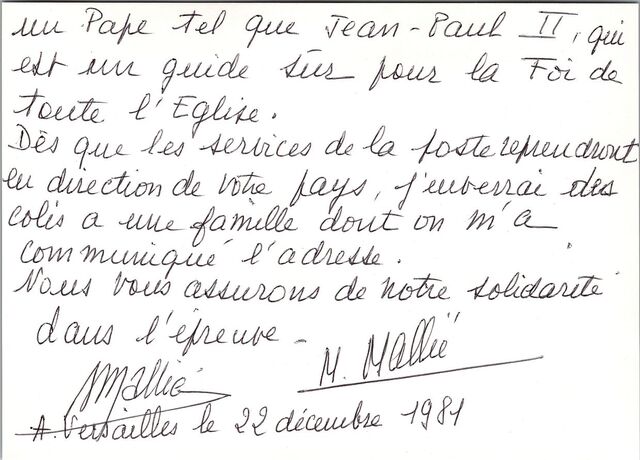 un Pape tel que Jean-Paul II, qui
est un guide sûr pour la Foi de
toute l'Eglise.
Dès que les services de la poste reprendront
en direction de votre pays, j'enverrai des
colis a une famille dont on m'a
communiqué l'adresse.
Nous vous assurons de notre solidarité
dans l'épreuve -
MMallié
M. Mallié
A. Versailles le 22 décembre 1981